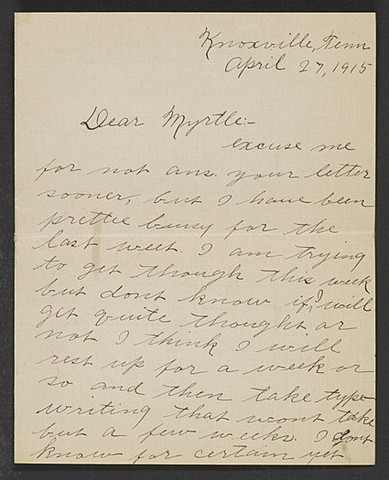 Knoxville, Tenn
April 27, 1915
Dear Myrtle:-
excuse me
for not ans. your letter
sooner, but I have been
prettie buisy for the
last week. I am trying
to get though this week
but dont know if I will
get quite thought or
not I think I will
rest up for a week or
so and then take type
writing that wont take
but a few weeks. I dont
know for certain yet